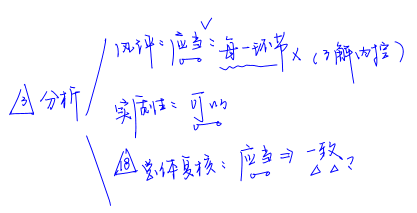 风评：应当√：每一环节 ×（了解内控）
③ 分析
实质性：可以
⑱ 总体复核：应当 ⇒ 一致？